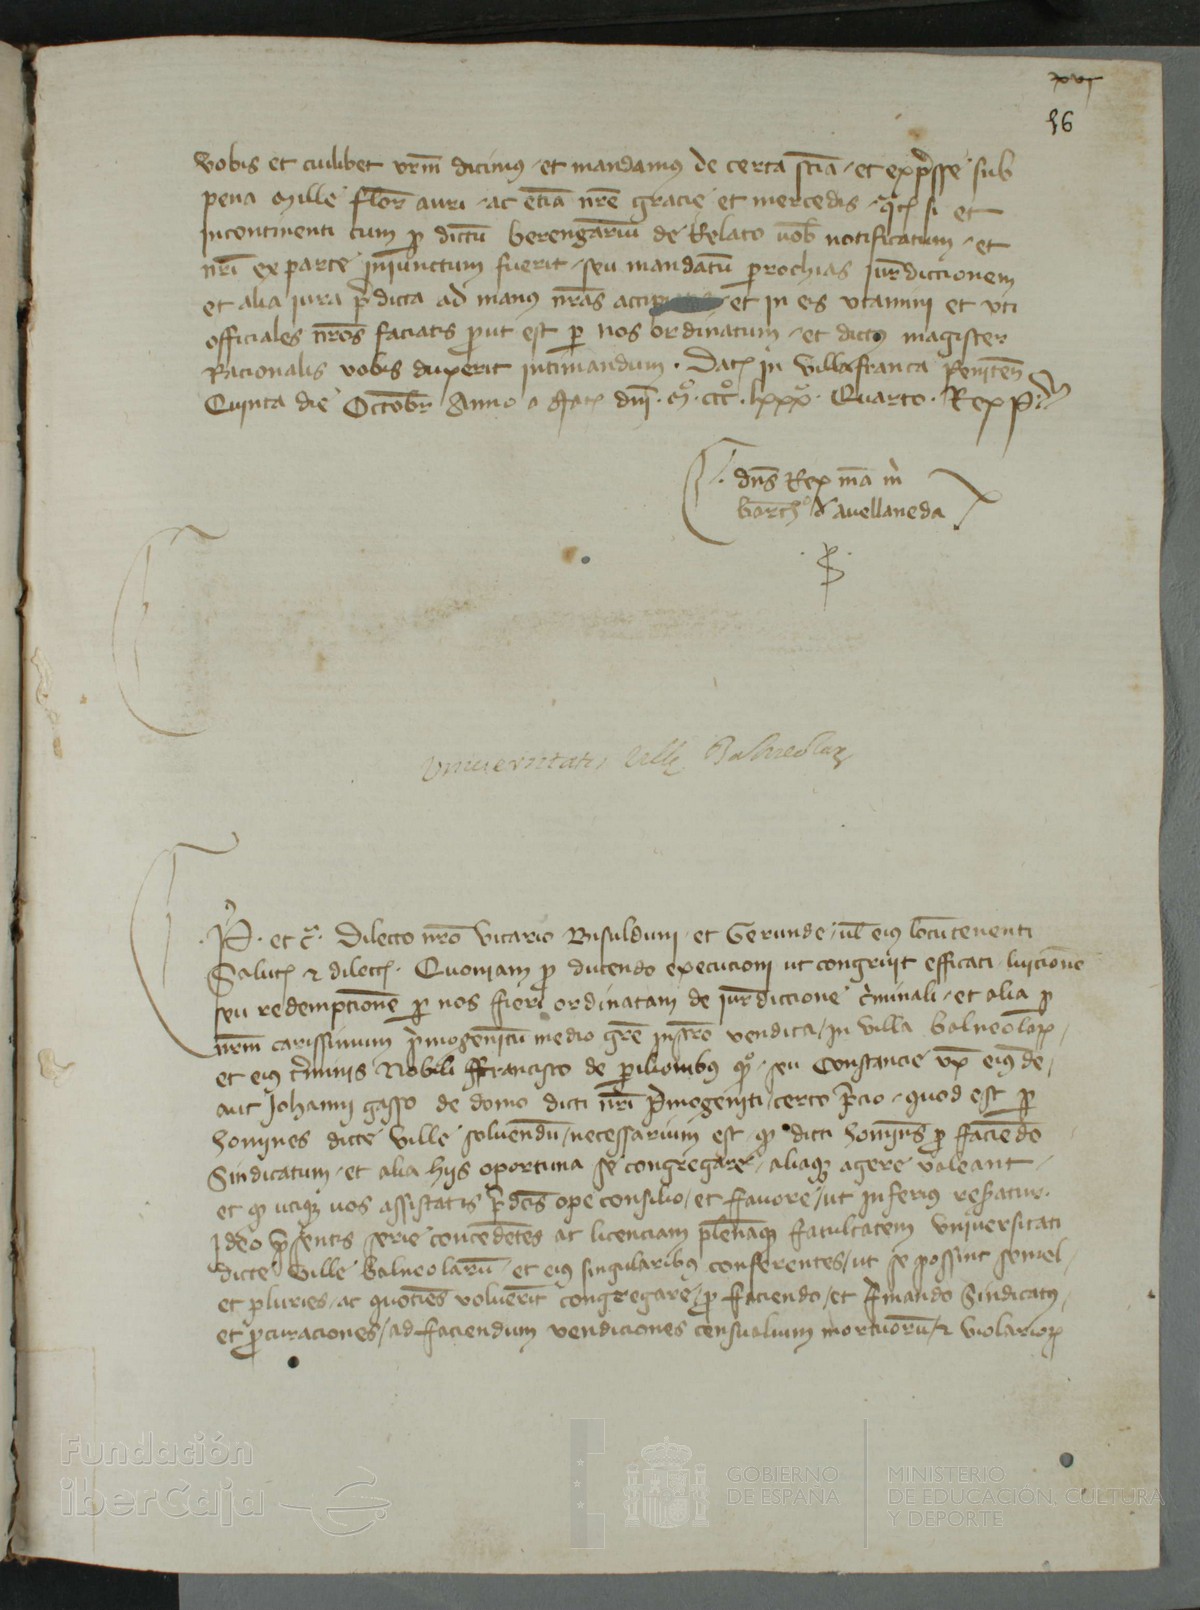 xvj
16
vobis et cuilibet vr̄m dicimus et mandamus de certa sciā et exp̄sse sub
pena mille flor̄ auri ac eciā nr̄e gracie et mercedis si et
incontinenti cum p dictū berengariū de Relato vob̄ notificatum et
nr̄i ex parte iniunctum fuerit seu mandatū parrochias iur̄diccionem
et alia iura p̄dicta ad manus nr̄as et in eis utamini et uti
officiales nr̄os faciatis put est p nos ordinatum et dictus magister
Racionalis vobis duxerit intimandum. Dat̄ in Villafranca Peniteñ
Quinta die Octobr̄ Anno a Nat̄ dnī. Mº. CCCº. lxxxº. Quarto. Rex P.
dn̄s Rex m̄a m̄
barth̄º d Avellaneda
Universitatis Ville Balneolar̄
P. et c̄. Dilecto nr̄o vicario Bisulduni et Gerunde ul̄ eius locūtenenti
Salut̄ z dilecc̄. Quoniam p ducendo execucioni ut congruit efficaci luicionē
seu redempcionē p nos fieri ordinatam de iur̄diccione c̄minali et alia p
nr̄m carissimum p̄mogenitū medio gr̄e instr̄o vendita in villa balneolar̄
et eius t̄minis Nobili ffrancisco de pilionibus qº seu Constancie ux̄ eius de
aut Johanni gasso de domo dicti nr̄i p̄mogeniti certo p̄cio quod est p
homines dicte ville solvendū necessarium est q dicti homines p faciēdo
Sindicatum et alia hijs oportuna se congregare aliaq agere valeant
et q utiq vos assistatis p̄dc̄is ope consilio et favore ut inferius
Ideo p̄sentis serie concedētes ac licenciam plenāq facultatem universitati
dicte ville balneolarū et eius singularibus conferentes ut se possint semel
et pluries ac quocīes voluerit congregare p faciendo et f̄mando Sindicatus
et p̄curaciones ad faciendum vendiciones censualium mortuorū z violarior̄
Fundación
iberCaja
GOBIERNO
DE ESPAÑA
MINISTERIO
DE EDUCACIÓN, CULTURA
Y DEPORTE